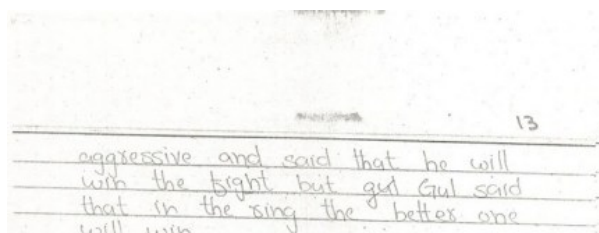 13
aggressive and said that he will
win the bight but gul Gul said
that in the ring the better one
will win